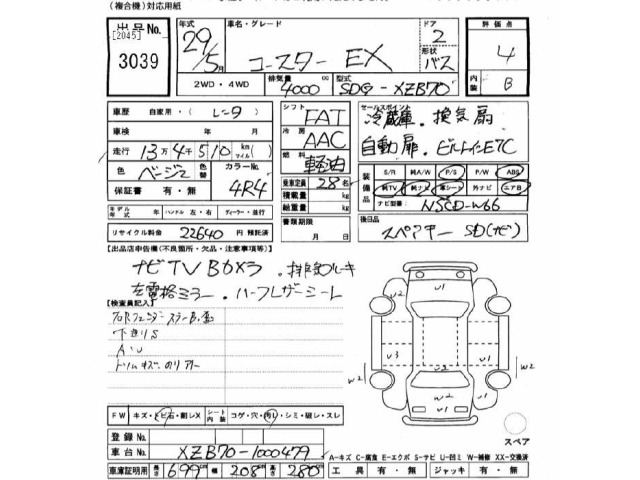 (複合機)対応用紙
出品No.
[2045]
3039
年式
29/5月
車名・グレード
コースター EX
ドア
2
形状
バス
評価点
4
内装
B
2WD・4WD
排気量
4000
cc
型式
SDG-XZB70
車歴
自家用・(レンタ)
車検
年 月
走行
13万4千510
km
(マイル)
色
ベージュ
色替
カラーNo.
4R4
保証書
有・無
モデル年式
年
ハンドル
左・右
ディーラー・並行
リサイクル料金
22640
円
預託済
シフト
FAT
冷房
AAC
燃料
軽油
乗車定員
28
名
積載量
kg
総重量
kg
書類期限
月 日
セールスポイント
冷蔵庫、換気扇
自動扉、ビルトインETC
装備品
S/R
純A/W
P/S
P/W
ABS
純TV
純ナビ
革シート
外ナビ
エアB
ナビ型番
NSCD-W66
後日品
スペアキー SD(ナビ)
【出品店申告機(不良箇所・欠品・注意事項等)】
ナビTV Bカメラ、排気ブレーキ
左電格ミラー、ハーフレザーシート
【検査員記入】
下廻りS
A・U
FW
キズ・ヒビ石・割レX
シート内装
コゲ・穴・汚レ・シミ・破レ・スレ
登録No.
車台No.
XZB70-1000479
車庫証明用
長さ
699
cm
幅
208
cm
高さ
280
cm
W2
U1
U1
U1
U3
U2
W2
W2
W2
U1
スペア
A=キズ C=腐食 E=エクボ S=サビ U=凹ミ W=補修 XX=交換済
工具
有・無
ジャッキ
有・無